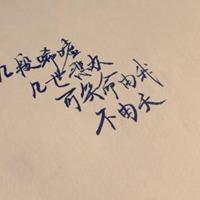 几段唏嘘
几世悲欢
可笑命由我
不由天